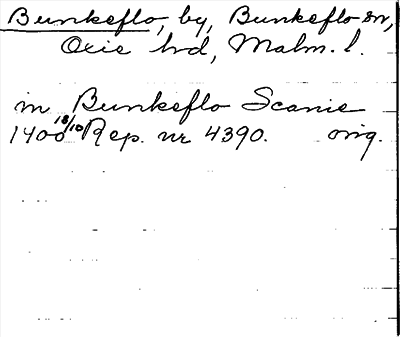 Bunkeflo, by, Bunkeflo sn,
Oxie hd, Malm. l.
in Bunkeflo Scanie
1400 18/10 Rep. nr 4390. orig.